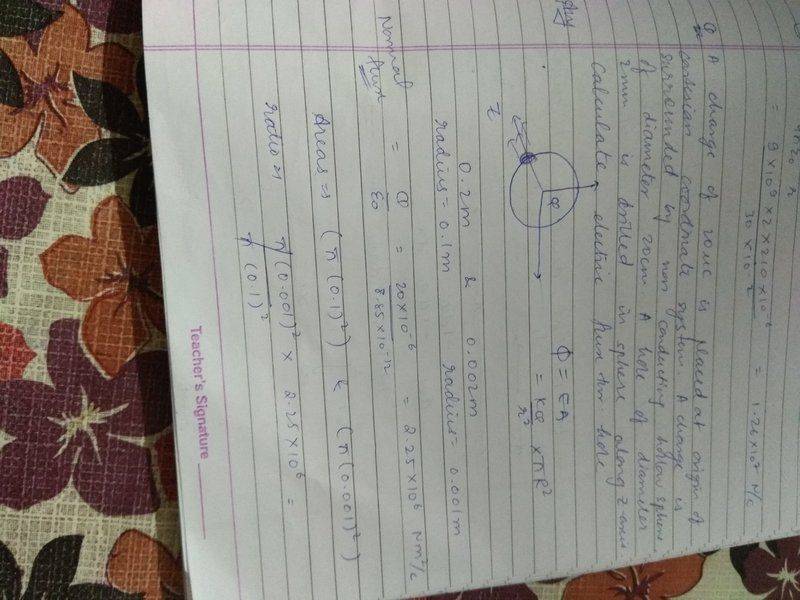 4πε0 r
= 9×10⁹ × 2 × 210×10⁻⁶ = 1.26×10⁷ N/C
30 × 10⁻²
Q A charge of 20μc is placed at origin of
cartesian coordinate system. A charge is
surrounded by non conducting hollow sphere
of diameter 20cm A hole of diameter
2mm is drilled in sphere along z-axis
Calculate electric flux thr hole
Any
Q
z
ϕ = EA
= KQ/r² × πR²
0.2m & 0.002m
radius = 0.1m radius = 0.001m
Normal
flux = Q/ε0 = 20×10⁻⁶/8.85×10⁻¹² = 2.25×10⁶ Nm²/c
Areas ⇒ (π(0.1)²) & (π(0.001)²)
ratio ⇒ π(0.001)²/π(0.1)² × 2.25×10⁶ =
Teacher's Signature